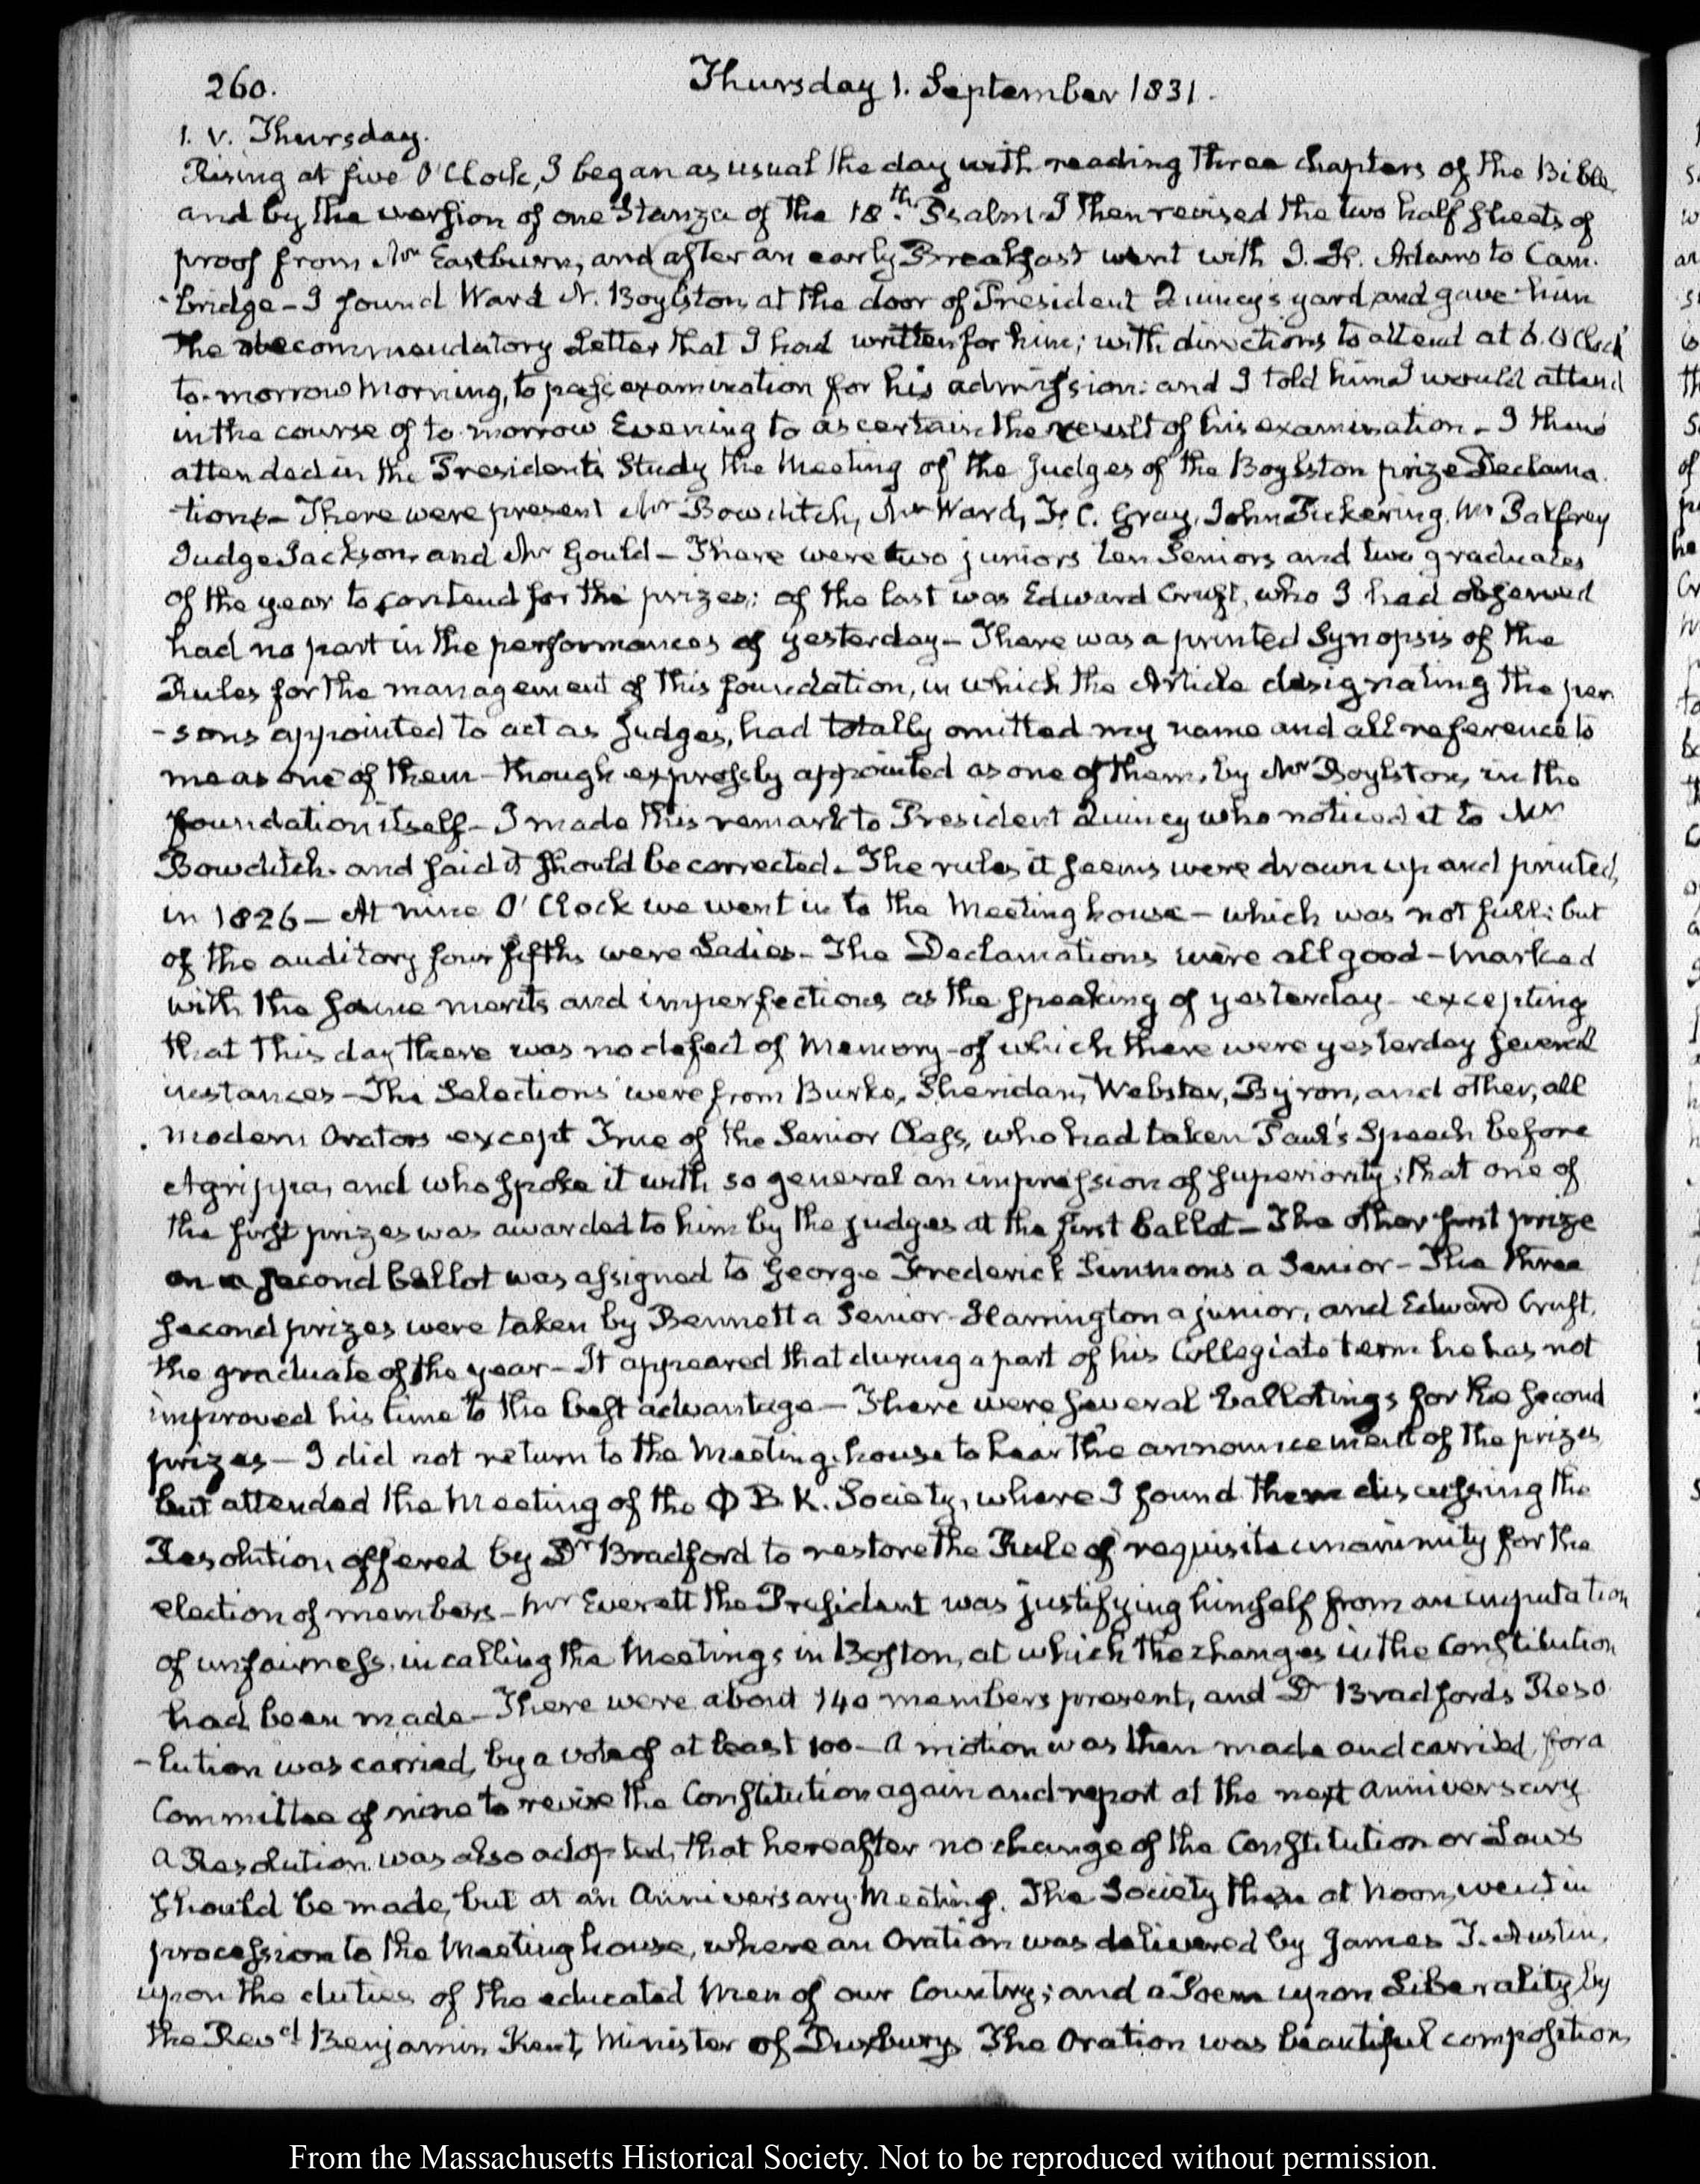 260.
Thursday 1. September 1831.
1. V. Thursday.
Rising at five O'Clock, I began as usual the day with reading three chapters of the Bible
and by the version of one Stanza of the 18.th Psalm. I then revised the two half sheets of
proof from Mr Eastburn, and after an early Breakfast went with I. H. Adams to Cam-
-bridge – I found Ward N. Boylston, at the door of President Quincy's yard, and gave him
the recommendatory Letter that I had written for him; with directions to attend at 6. O'Clock
to-morrow Morning, to pass examination for his admission: and I told him I would attend
in the course of to-morrow Evening to ascertain the result of his examination – I then
attended in the President's Study the Meeting of the Judges of the Boylston prize Declama-
-tions – There were present Mr Bowditch, Mr Ward, F. C. Gray, John Pickering, Mr Palfrey
Judge Jackson, and Mr Gould – There were two juniors ten Seniors and two graduates
of the year to contend for the prizes: of the last was Edward Cruft, who I had observed
had no part in the performances of yesterday – There was a printed Synopsis of the
Rules for the management of this foundation, in which the Article designating the per-
-sons appointed to act as Judges, had totally omitted my name and all reference to
me as one of them – though expressly appointed as one of them, by Mr Boylston, in the
foundation itself – I made this remark to President Quincy who noticed it to Mr
Bowditch and said it should be corrected – The rules it seems were drawn up and printed,
in 1826 – At nine O'Clock we went in to the Meeting house – which was not full: but
of the auditory four fifths were Ladies – The Declamations were all good – marked
with the same merits and imperfections as the speaking of yesterday – excepting
that this day there was no defect of Memory – of which there were yesterday several
instances – The Selections were from Burke, Sheridan, Webster, Byron, and other, all
modern Orators except True of the Senior Class, who had taken Paul's Speech before
Agrippa, and who spoke it with so general an impression of superiority; that one of
the first prizes was awarded to him by the judges at the first ballot – The other first prize
on a second ballot was assigned to George Frederick Simmons a Senior – The three
second prizes were taken by Bennett a Senior – Harrington a junior, and Edward Cruft,
the graduate of the year – It appeared that during a part of his Collegiate term he has not
improved his time to the best advantage – There were several ballotings for the second
prizes – I did not return to the Meeting-house to hear the announcement of the prizes
but attended the Meeting of the Φ B. K. Society, where I found them discussing the
Resolution offered by Dr Bradford to restore the Rule of requisite unanimity for the
election of members – Mr Everett the President was justifying himself from an imputation
of unfairness, in calling the Meetings in Boston, at which the changes in the Constitution
had been made – There were about 140 members present, and Dr Bradfords Reso-
-lution was carried, by a vote of at least 100 – A motion was then made and carried for a
Committee of nine to revise the Constitution again and report at the next anniversary
A Resolution was also adopted, that hereafter no change of the Constitution or Laws
should be made, but at an Anniversary Meeting. The Society then at Noon, went in
procession to the Meeting house, where an Oration was delivered by James T. Austin,
upon the duties of the educated Men of our Country; and a Poem upon Liberality by
the Revd Benjamin Kent, Minister of Duxbury. The Oration was beautiful composition,
From the Massachusetts Historical Society. Not to be reproduced without permission.